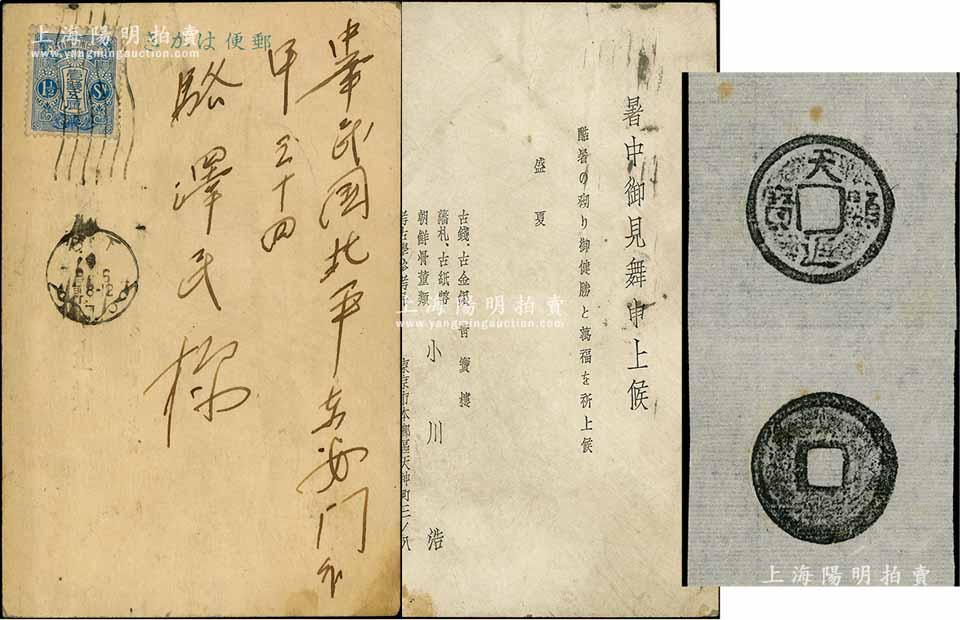 上海陽明拍賣
www.yangmingauction.com
郵便はがき
1½ Sn
中華民国北平東安門外
甲三十四
駱澤民様
暑中御見舞申上候
酷暑の砌り御健勝と萬福を祈上候
盛夏
古錢、古金銀
藩札、古紙幣
朝鮮骨董類
寶樓
小川浩
東京市本郷區天神町三ノ八
上海陽明拍賣
www.yangmingauction.com
天
上海陽明拍賣